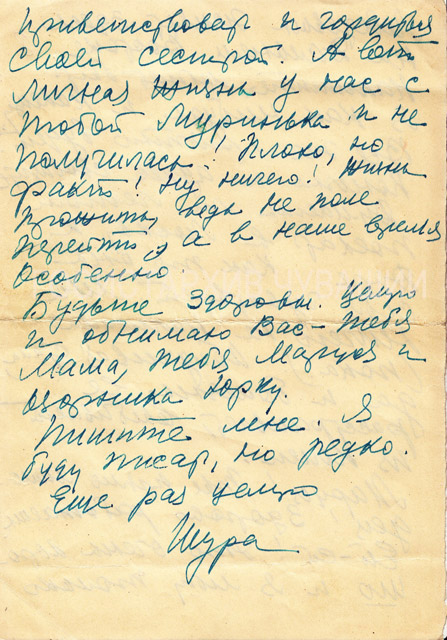 приветствовал и гордиться
своей сестрой. А вот
личная жизнь у нас с
тобой Муринька и не
получилась! Плохо, но
факт! Ну ничего! Жизнь
прожить, ведь не поле
перейти, а в наше время
особенно.
Будьте здоровы. Целую
и обнимаю Вас – тебя
Мама, тебя Маруся и
Юрку.
Пишите мне. Я
буду писать, но редко.
Еще раз целую
Шура